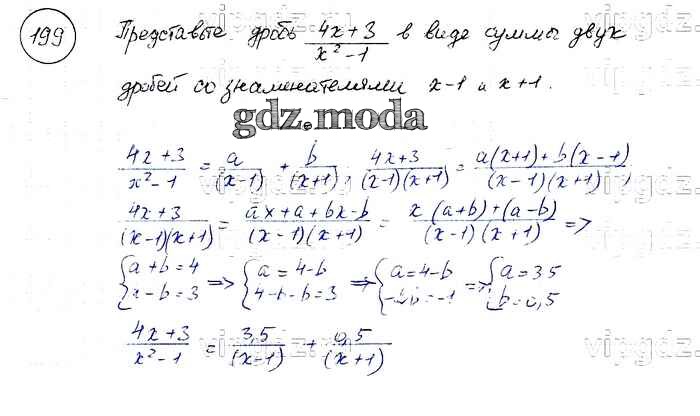 199 Представьте дробь (4x+3)/(x²-1) в виде суммы двух
дробей со знаменателями x-1 и x+1.
gdz.moda
(4x+3)/(x²-1) = a/(x-1) + b/(x+1); (4x+3)/((x-1)(x+1)) = (a(x+1)+b(x-1))/((x-1)(x+1)),
(4x+3)/((x-1)(x+1)) = (ax+a+bx-b)/((x-1)(x+1)) = (x(a+b)+(a-b))/((x-1)(x+1)) =>
{a+b=4 => {a=4-b => {a=4-b => {a=3,5
{a-b=3 {4-b-b=3 {-2b=-1 {b=0,5
(4x+3)/(x²-1) = 3,5/(x-1) + 0,5/(x+1)
vipgdz
vipgdz
vipgdz
vipgdz